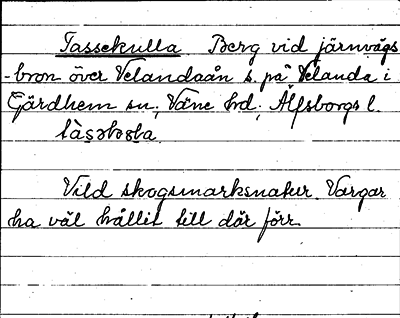 Tassekulla. Berg vid järnvägs
-bron över Velandaån s. på Velanda i
Gärdhem sn, Väne hd, Älfsborgs l.
Vild skogsmarksnatur. Vargar
ha väl hållit till där förr